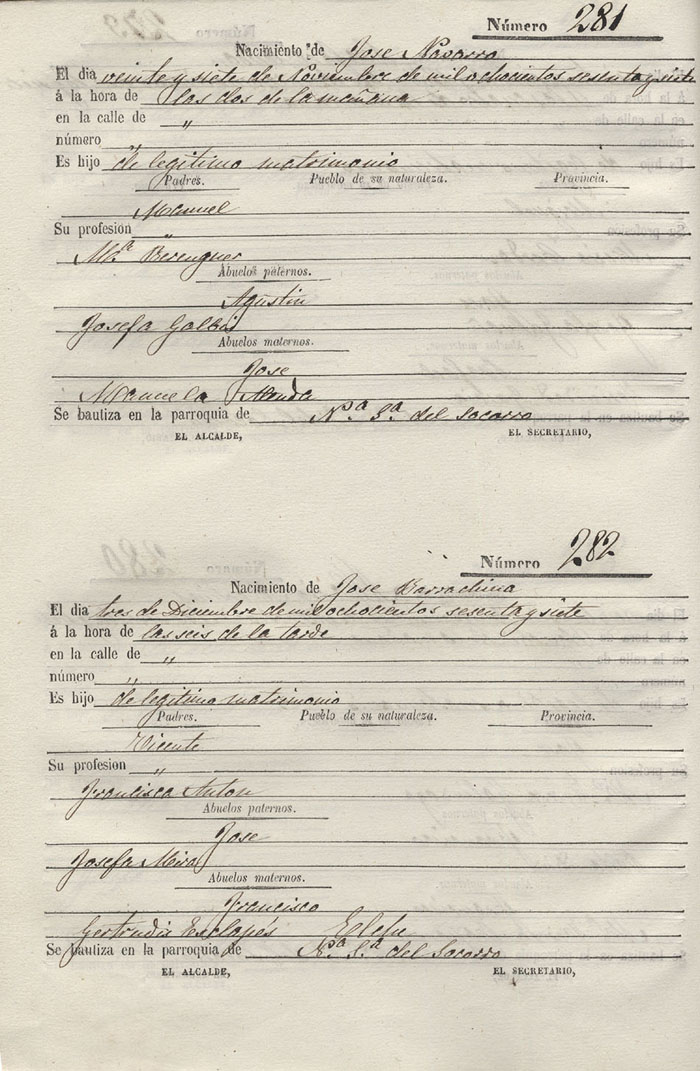 Número 281
Nacimiento de Jose Navarro
El dia veinte y siete de Noviembre de mil ochocientos sesenta y siete
á la hora de las dos de la mañana
en la calle de "
número "
Es hijo de legitimo matrimonio
Padres. Pueblo de su naturaleza. Provincia.
Manuel
Su profesion "
Mª Berenguer
Abuelos paternos.
Agustin
Josefa Galbis
Abuelos maternos.
Jose
Manuela
Se bautiza en la parroquia de Nª Sª del Socorro
EL ALCALDE, EL SECRETARIO,
Número 282
Nacimiento de Jose Barrachina
El dia tres de Diciembre de mil ochocientos sesenta y siete
á la hora de las seis de la tarde
en la calle de "
número "
Es hijo de legitimo matrimonio
Padres. Pueblo de su naturaleza. Provincia.
Vicente
Su profesion "
Francisca Anton
Abuelos paternos.
Jose
Josefa Mira
Abuelos maternos.
Francisco
Gertrudis Esclapés Elche
Se bautiza en la parroquia de Nª Sª del Socorro
EL ALCALDE, EL SECRETARIO,